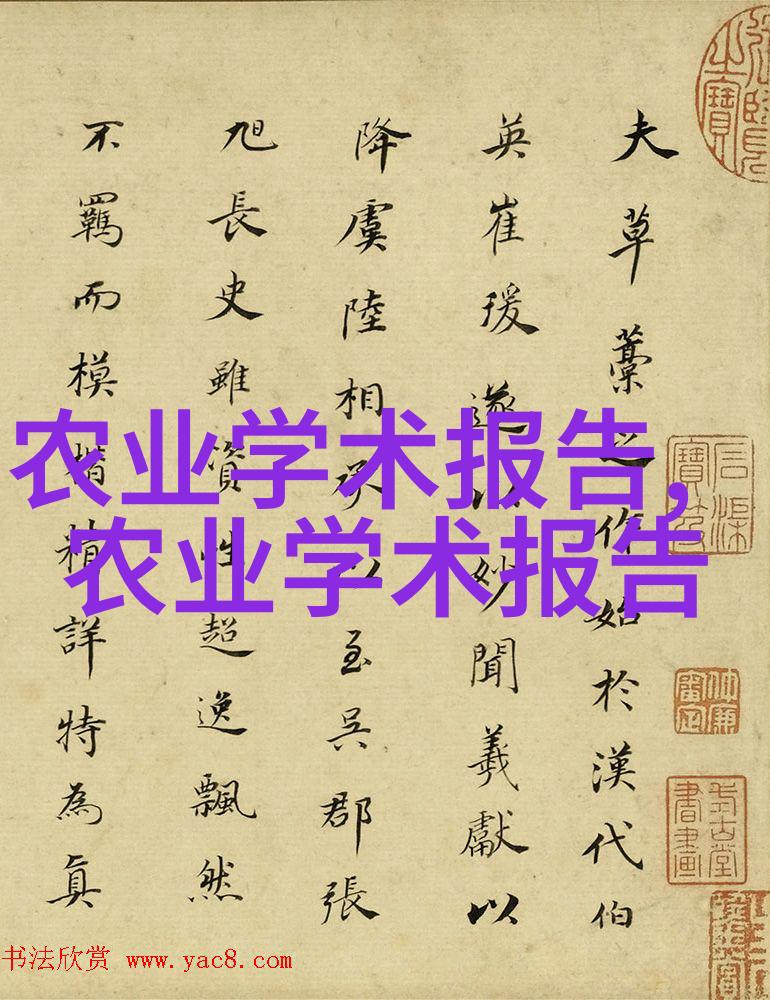 夫草藁之作始於漢代伯
英崔瑗遂以妙聞羲獻以
降虞陸相承以至吳郡張
旭長史雖資性超逸飄然
不羈而模楷精詳特為真
农业学术报告,
农业学术报告
书法欣赏 www.yac8.com